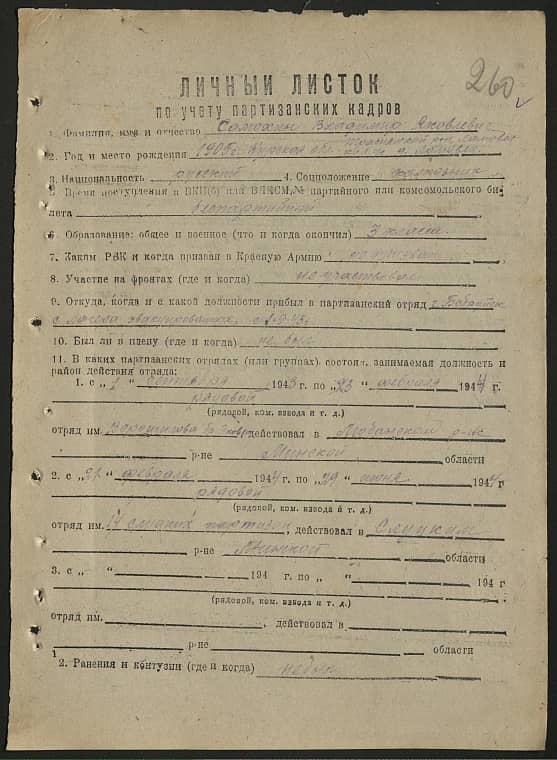 260
ЛИЧНЫЙ ЛИСТОК
по учету партизанских кадров
1. Фамилия, имя и отчество Владимир Яковлевич
2. Год и место рождения 1905
3. Национальность русский 4. Соцположение
5. Время поступления в ВКП(б) или ВЛКСМ, № партийного или комсомольского би-
лета беспартийный
6. Образование: общее и военное (что и когда окончил) 3 класса
7. Каким РВК и когда призван в Красную Армию не призван
8. Участие на фронтах (где и когда) не участвовал
9. Откуда, когда и с какой должности прибыл в партизанский отряд
с лагеря
10. Был ли в плену (где и когда) не был
11. В каких партизанских отрядах (или группах) состоял, занимаемая должность и
район действия отряда:
1. с „ “ сентября 1943 г. по „23 “ февраля 1944 г.
рядовой
(рядовой, ком. взвода и т. д.)
отряд им. Ворошилова действовал в Любанском р-не
р-не Минской области
2. с „ “ февраля 1944 г. по „29 “ июня 1944 г
рядовой
(рядовой, ком. взвода и т. д.)
отряд им. партизан, действовал в Слуцком
р-не Минской области
3. с „ “ 194 г. по „ “ 194 г
(рядовой, ком. взвода и т. д.)
отряд им. , действовал в
р-не области
2. Ранения и контузии (где и когда) не был